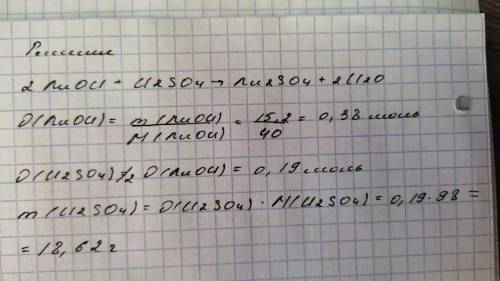 Решение
2NaOH + H2SO4 → Na2SO4 + 2H2O
ν(NaOH) = m(NaOH) / M(NaOH) = 15,2 / 40 = 0,38 моль
ν(H2SO4) = 1/2 ν(NaOH) = 0,19 моль
m(H2SO4) = ν(H2SO4) · M(H2SO4) = 0,19 · 98 =
= 18,62 г